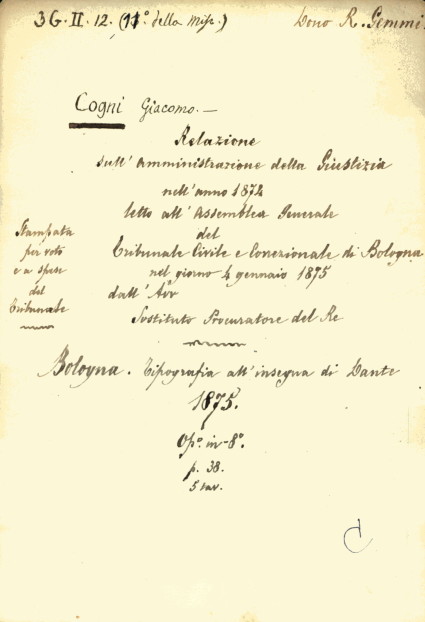 36. II. 12. (11º della Misc.) Dono R. Gemmi.
Cogni Giacomo. —
Relazione
sull'Amministrazione della Giustizia
nell'anno 1874
letto all'Assemblea Generale
del
Tribunale Civile e Correzionale di Bologna
nel giorno 4 gennaio 1875
dall'Avv
Sostituto Procuratore del Re
Stampata
per voto
e a spese
del
Tribunale
Bologna. Tipografia all'insegna di Dante
1875.
Opº. in-8º.
p. 38.
5 tav.
C